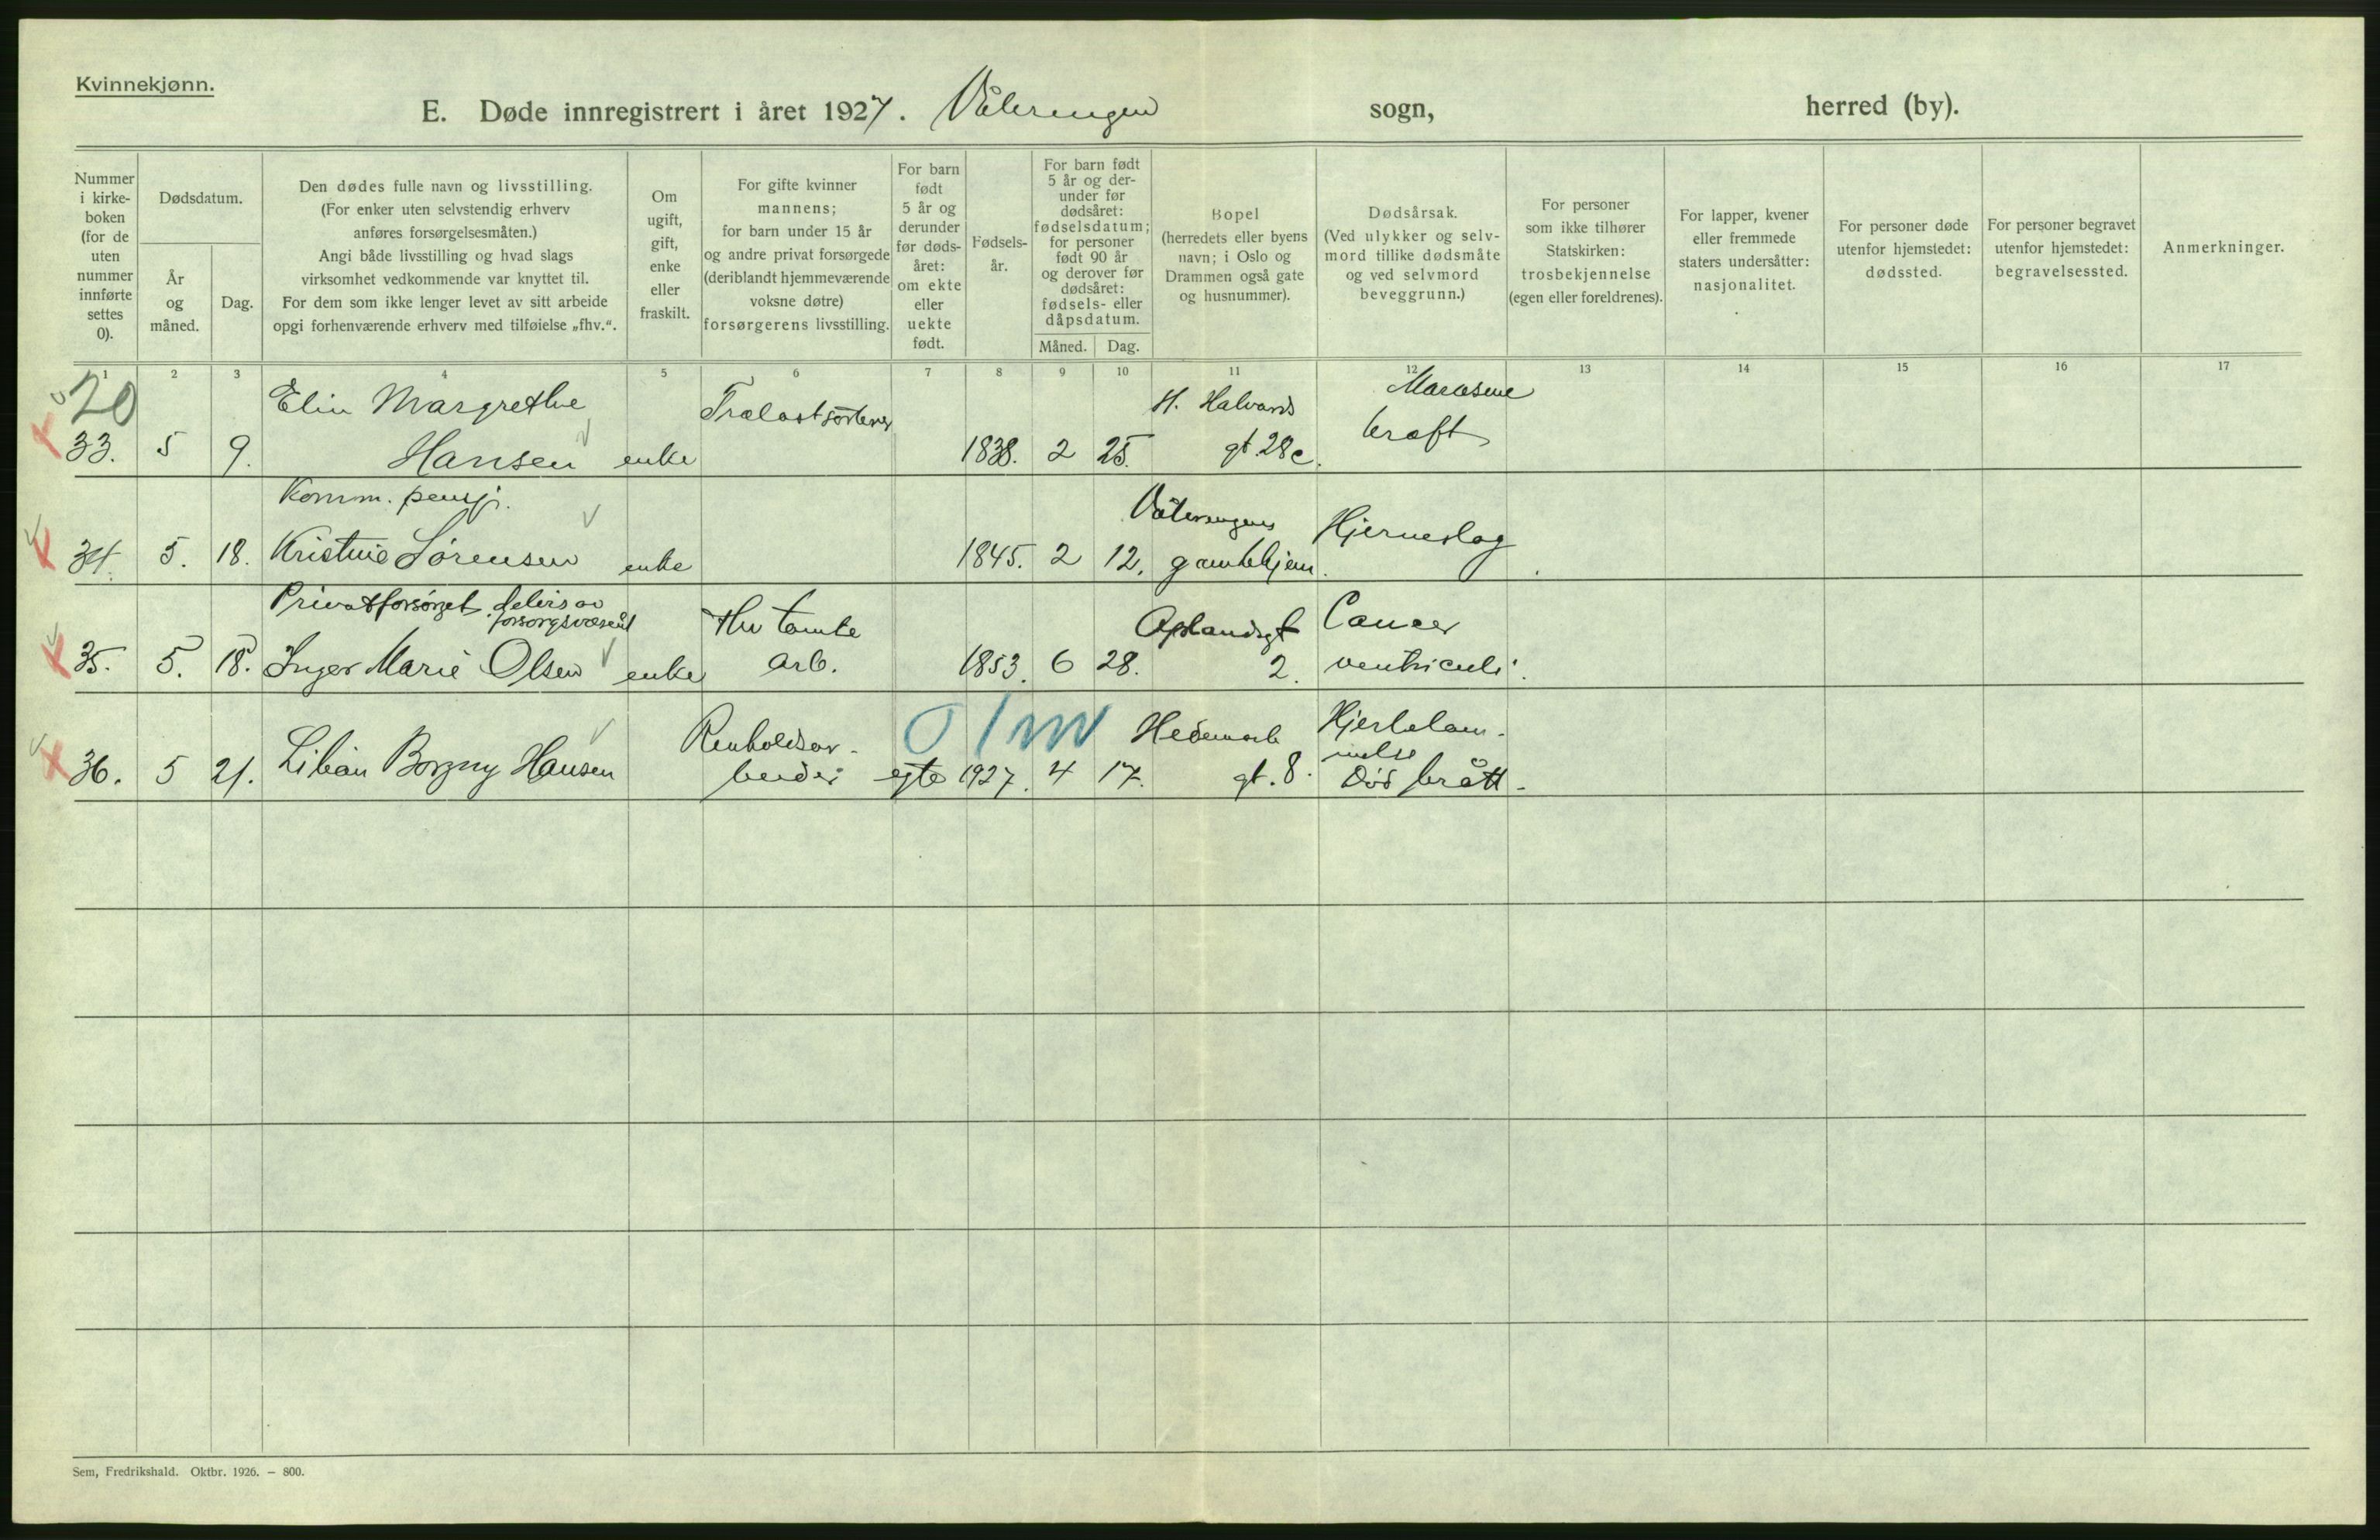 Kvinnekjønn.
E. Døde innregistrert i året 1927. Vålerengen sogn, herred (by).
Nummer
i kirke-
boken
(for de
uten
nummer
innførte
settes
0).
Dødsdatum.
År
og
måned.
Dag.
Den dødes fulle navn og livsstilling.
(For enker uten selvstendig erhverv
anføres forsørgelsesmåten.)
Angi både livsstilling og hvad slags
virksomhet vedkommende var knyttet til.
For dem som ikke lenger levet av sitt arbeide
opgi forhenværende erhverv med tilføielse „fhv.“.
Om
ugift,
gift,
enke
eller
fraskilt.
For gifte kvinner
mannens;
for barn under 15 år
og andre privat forsørgede
(deriblandt hjemmeværende
voksne døtre)
forsørgerens livsstilling.
For barn
født
5 år og
derunder
før døds-
året:
om ekte
eller
uekte
født.
Fødsels-
år.
For barn født
5 år og der-
under før
dødsåret:
fødselsdatum;
for personer
født 90 år
og derover før
dødsåret:
fødsels- eller
dåpsdatum.
Måned. Dag.
Bopel
(herredets eller byens
navn; i Oslo og
Drammen også gate
og husnummer).
Dødsårsak.
(Ved ulykker og selv-
mord tillike dødsmåte
og ved selvmord
beveggrunn.)
For personer
som ikke tilhører
Statskirken:
trosbekjennelse
(egen eller foreldrenes).
For lapper, kvener
eller fremmede
staters undersåtter:
nasjonalitet.
For personer døde
utenfor hjemstedet:
dødssted.
For personer begravet
utenfor hjemstedet:
begravelsessted.
Anmerkninger.
1 2 3 4 5 6 7 8 9 10 11 12 13 14 15 16 17
20
Elin Margrethe Trælastsorterer H. Halvards Marasme
33. 5 9. Hansen enke 1838. 2 25. gt. 28c. kraft
Komm. pensj. Vålerengens Hjerneslag
34. 5. 18. Kristine Sørensen enke 1845. 2 12. gamlehjem.
Privatforsørget delvis av
forsorgsvæsenet fhv tomte Oplandsgt Cancer
35. 5. 18. Inger Marie Olsen enke arb. 1853. 6 28. 2. ventriculi.
Renholdsar- 0 1 m Hedemark Hjertelam-
melse
36. 5 21. Lilian Borgny Hansen beider egte 1927. 4 17. gt. 8. Død brått.
Sem, Fredrikshald. Oktbr. 1926. — 800.